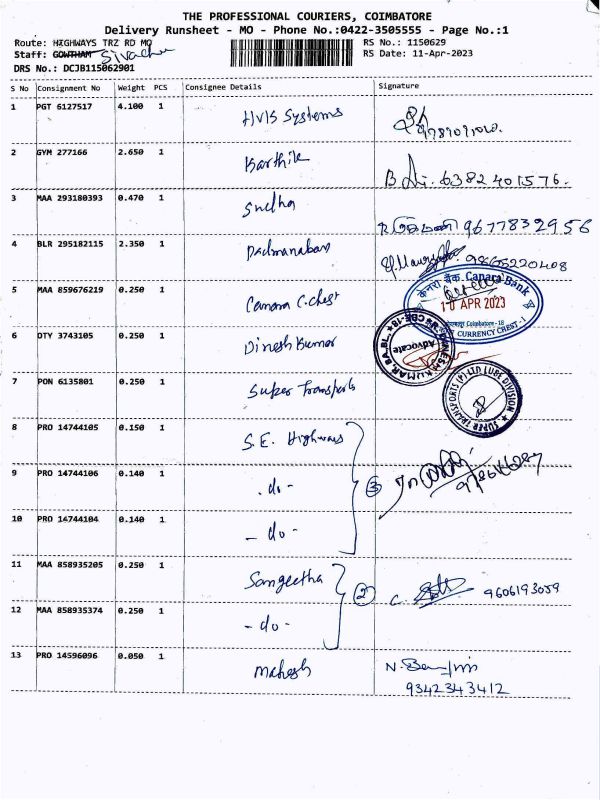 THE PROFESSIONAL COURIERS, COIMBATORE
Delivery Runsheet - MO - Phone No.:0422-3505555 - Page No.:1
Route: HIGHWAYS TRZ RD MO
RS No.: 1150629
Staff: GOWTHAM
RS Date: 11-Apr-2023
DRS No.: DCJB115062901
S No Consignment No Weight PCS Consignee Details Signature
1 PGT 6127517 4.100 1 HVIS Systems
2 GYM 277166 2.650 1 Karthik 6382401576.
3 MAA 293180393 0.470 1 Sneha 9677832956
4 BLR 295182115 2.350 1 Padmanaban 9865220408
5 MAA 859676219 0.250 1 Canara C.chest
केनरा बैंक Canara Bank
APR 2023
Coimbatore - 18
CURRENCY CHEST - I
6 DTY 3743105 0.250 1 Dinesh Kumar
Advocate
7 PON 6135801 0.250 1 Super Transports
SUPER TRANSPORTS (P) LTD (LUBE DIVISION)
8 PRO 14744105 0.150 1 S.E. Highways
9 PRO 14744106 0.140 1 - do - 3
10 PRO 14744104 0.140 1 - do -
11 MAA 858935205 0.250 1 Sangeetha 2 9606193059
12 MAA 858935374 0.250 1 - do -
13 PRO 14596096 0.050 1 Mahesh
9342343412